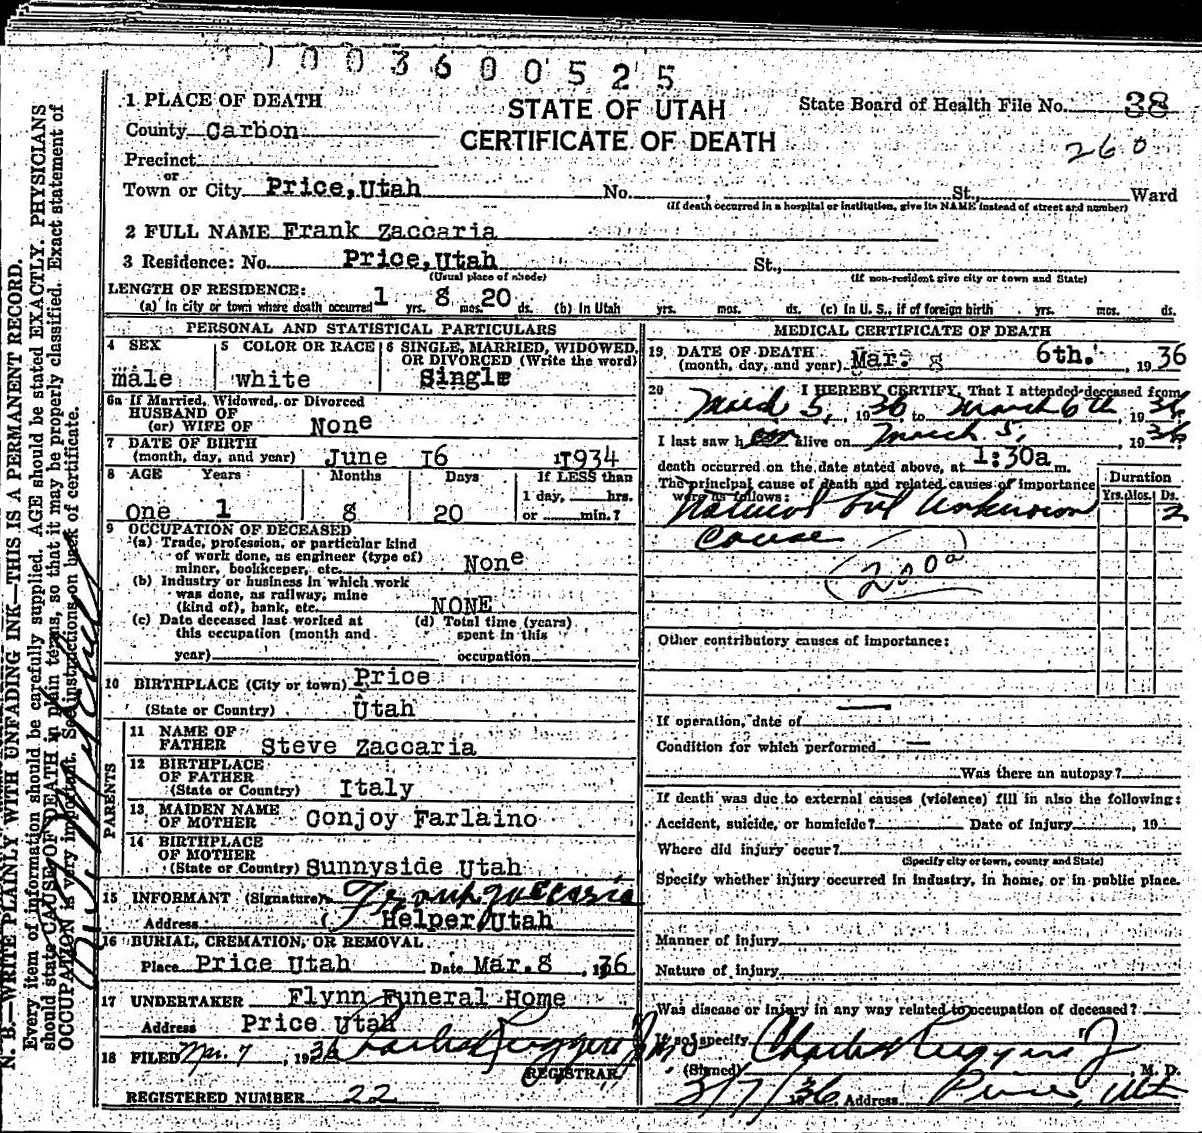 1003600525
1 PLACE OF DEATH
STATE OF UTAH
CERTIFICATE OF DEATH
State Board of Health File No. 38
260
County Carbon
Precinct
or
Town or City Price,Utah No. , St., Ward
(If death occurred in a hospital or institution, give its NAME instead of street and number)
2 FULL NAME Frank Zaccaria
3 Residence: No. Price,Utah St.,
(Usual place of abode) (If non-resident give city or town and State)
LENGTH OF RESIDENCE:
(a) In city or town where death occurred 1 yrs. 8 mos. 20 ds. (b) In Utah yrs. mos. ds. (c) In U. S., if of foreign birth yrs. mos. ds.
PERSONAL AND STATISTICAL PARTICULARS
4 SEX
male
5 COLOR OR RACE
white
6 SINGLE, MARRIED, WIDOWED,
OR DIVORCED (Write the word)
Single
6a If Married, Widowed, or Divorced
HUSBAND OF
(or) WIFE OF None
7 DATE OF BIRTH
(month, day, and year) June 16 1934
8 AGE Years Months Days If LESS than
1 day, hrs.
One 1 8 20 or min.?
9 OCCUPATION OF DECEASED
(a) Trade, profession, or particular kind
of work done, as engineer (type of)
miner, bookkeeper, etc. None
(b) Industry or business in which work
was done, as railway, mine
(kind of), bank, etc. NONE
(c) Date deceased last worked at
this occupation (month and
year)
(d) Total time (years)
spent in this
occupation
10 BIRTHPLACE (City or town) Price
(State or Country) Utah
PARENTS
11 NAME OF
FATHER Steve Zaccaria
12 BIRTHPLACE
OF FATHER
(State or Country) Italy
13 MAIDEN NAME
OF MOTHER Conjoy Farlaino
14 BIRTHPLACE
OF MOTHER
(State or Country) Sunnyside Utah
15 INFORMANT (Signature) Frank Zaccaria
Address Helper, Utah
16 BURIAL, CREMATION, OR REMOVAL
Place Price Utah Date Mar. 8 , 1936
17 UNDERTAKER Flynn Funeral Home
Address Price Utah
18 FILED Mar. 7, 1936 Charles Ruggeri Jr
REGISTRAR
REGISTERED NUMBER 22
MEDICAL CERTIFICATE OF DEATH
19 DATE OF DEATH
(month, day, and year) Mar. 8 6th. , 1936
20 I HEREBY CERTIFY, That I attended deceased from
March 5, 1936 to March 6th, 1936
I last saw h alive on March 5, 1936
death occurred on the date stated above, at 1:30a m.
The principal cause of death and related causes of importance
were as follows:
Duration
Yrs. Mos. Ds.
Natural but Unknown 2
Cause
200a
Other contributory causes of importance:
If operation, date of —
Condition for which performed —
Was there an autopsy?
If death was due to external causes (violence) fill in also the following:
Accident, suicide, or homicide? Date of injury , 19
Where did injury occur?
(Specify city or town, county and State)
Specify whether injury occurred in industry, in home, or in public place.
Manner of injury
Nature of injury
Was disease or injury in any way related to occupation of deceased?
If so, specify
(Signed) Charles Ruggeri Jr M. D.
3/7/1936 Address Price, Utah
N. B.—WRITE PLAINLY WITH UNFADING INK—THIS IS A PERMANENT RECORD.
Every item of information should be carefully supplied. AGE should be stated EXACTLY. PHYSICIANS
should state CAUSE OF DEATH in plain terms, so that it may be properly classified. Exact statement of
OCCUPATION is very important. See instructions on back of certificate.